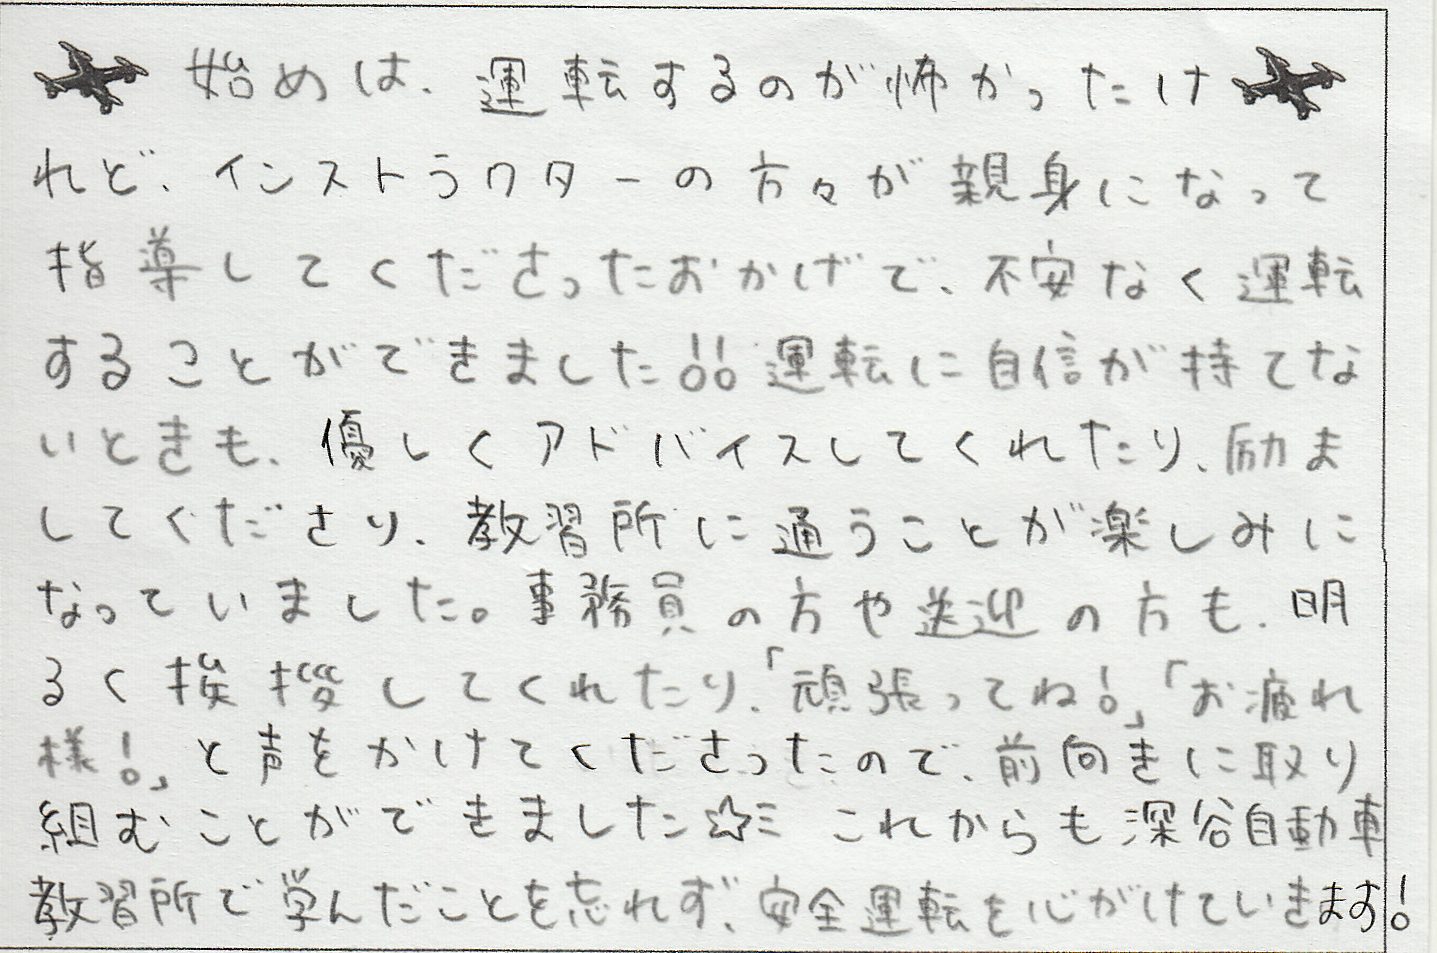 始めは、運転するのが怖かったけ
れど、インストラクターの方々が親身になって
指導してくださったおかげで、不安なく運転
することができました!!運転に自信が持てな
いときも、優しくアドバイスしてくれたり、励ま
してくださり、教習所に通うことが楽しみに
なっていました。事務員の方や送迎の方も、明
るく挨拶してくれたり、「頑張ってね!」「お疲れ
様!」と声をかけてくださったので、前向きに取り
組むことができました☆ミ これからも深谷自動車
教習所で学んだことを忘れず、安全運転を心がけていきます!